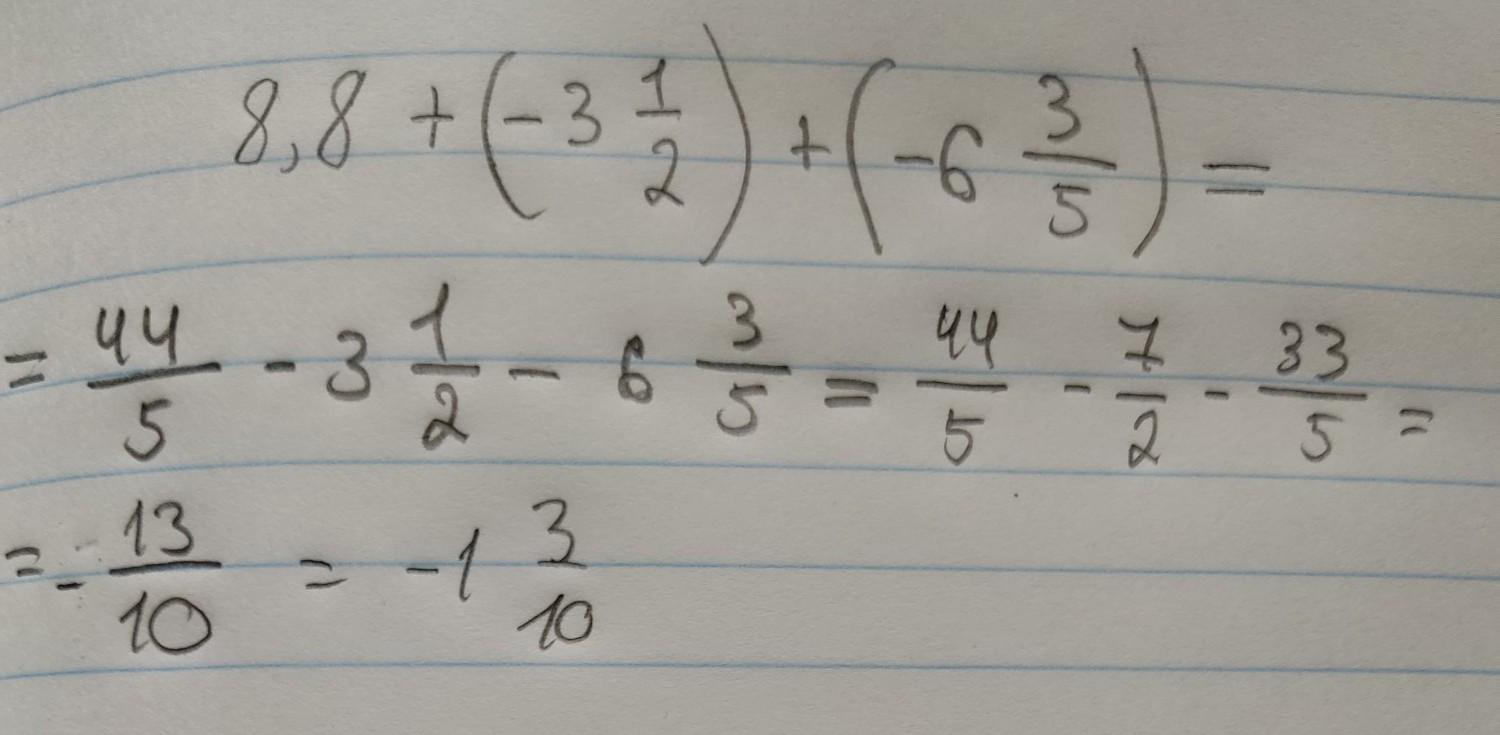 8,8 + (-3 1/2) + (-6 3/5) =
= 44/5 - 3 1/2 - 6 3/5 = 44/5 - 7/2 - 33/5 =
= - 13/10 = -1 3/10